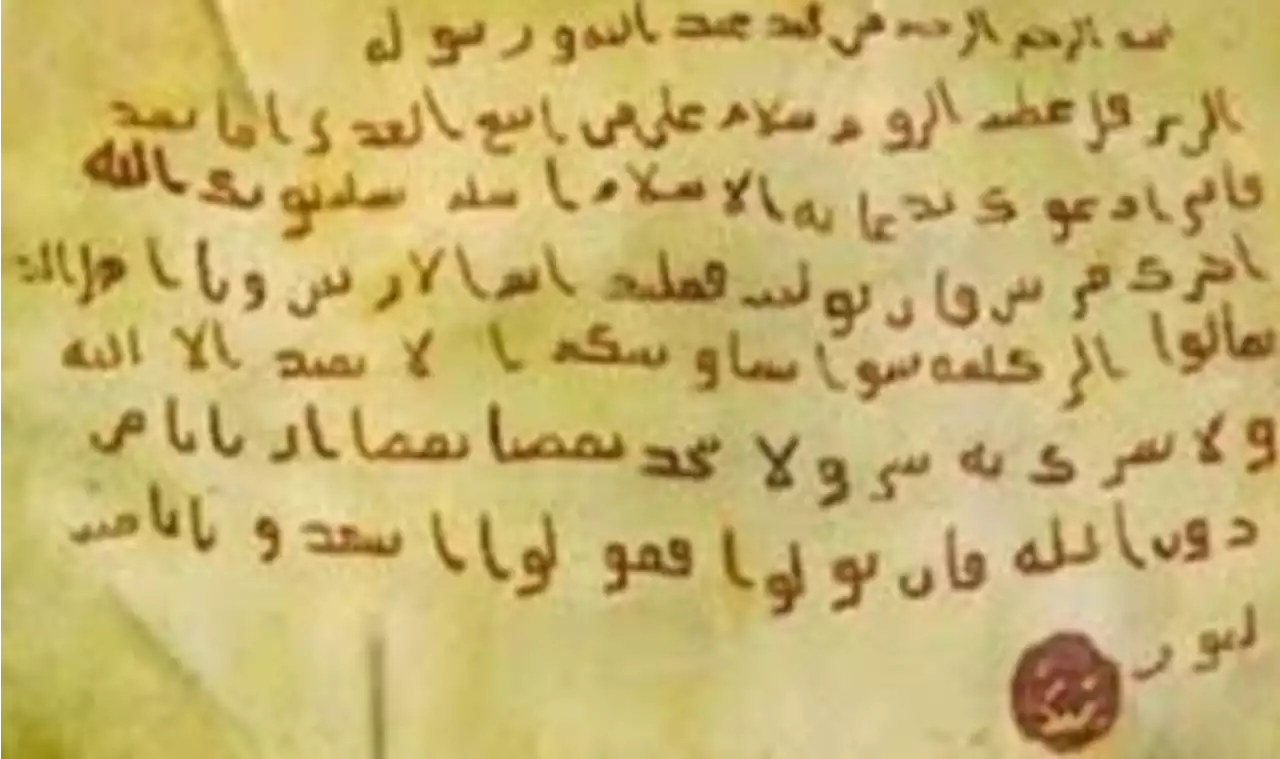 بسم الله الرحمن الرحيم من محمد عبد الله و رسول
الى هرقل عظيم الروم سلام على من اتبع الهدى اما بعد
فانى ادعوك بدعاية الاسلام اسلم تسلم يوتك الله
اجرك مرتين فان توليت فعليك اثم الاريسين و يا اهل الكتب
تعالوا الى كلمة سوا بيننا و بينكم ا لا نعبد الا الله
و لا نشرك به شى و لا يتخذ بعضنا بعضا اربابا من
دون الله فان تولوا فقولوا اشهدوا بانا مسلمون